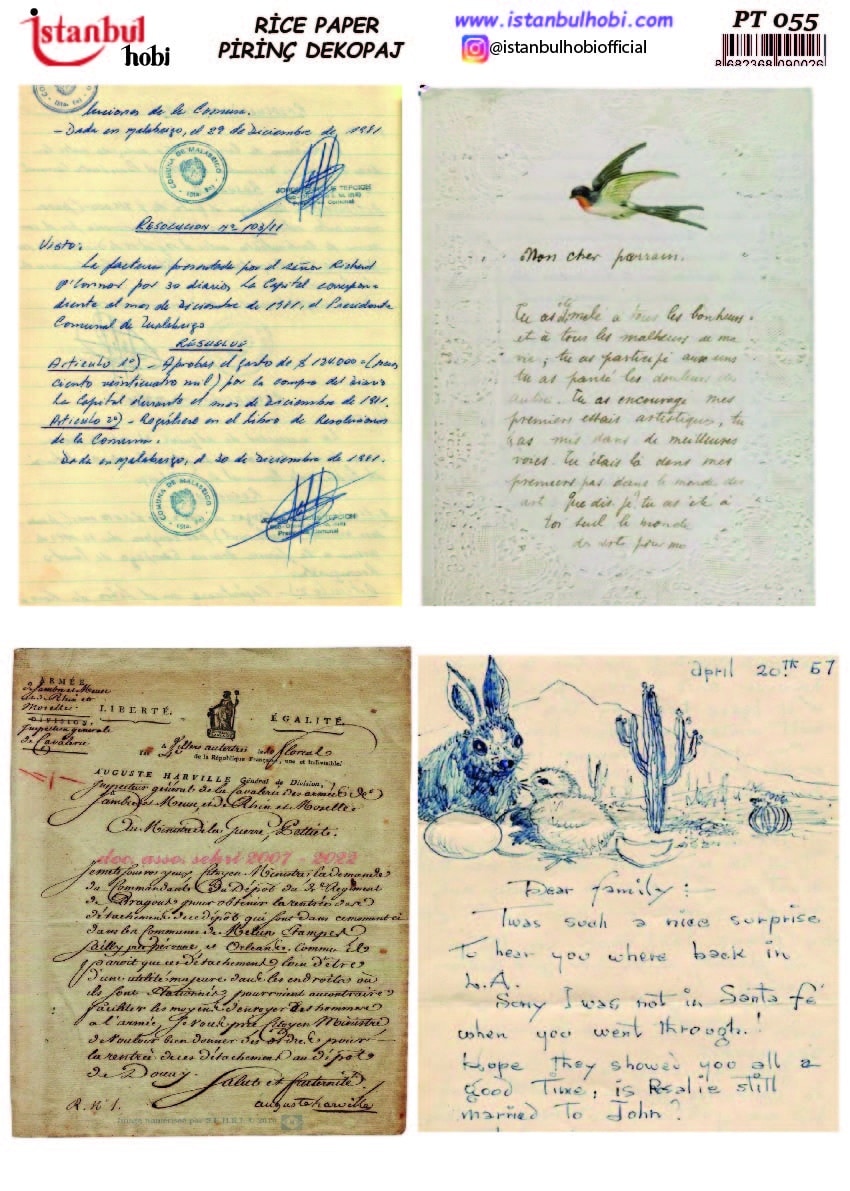 istanbul
hobi
RİCE PAPER
PİRİNÇ DEKOPAJ
www.istanbulhobi.com
@istanbulhobiofficial
PT 055
8 682368 090026
de la Comuna.
- Dada en Malabrigo, el 29 de Diciembre de 1981
COMUNA DE MALABRIGO
TEPCION
Presidente Comunal
RESOLUCION Nº 103/81
Visto:
La factura presentada por el señor Richard
O'Connor por 30 diarios La Capital correspon-
diente al mes de Diciembre de 1981, el Presidente
Comunal de Malabrigo
RESUELVE
Articulo 1º) - el gasto de $ 124.000=(
ciento veinticuatro mil) por la compra del diario
La Capital durante el mes de Diciembre de 1981.
Articulo 2º) - en el Libro de Resoluciones
de la Comuna.
Dada en Malabrigo, el 30 de Diciembre de 1981.
COMUNA DE MALABRIGO
TEPCION
Presidente Comunal
Mon cher parrain.
Tu as mêlé à tous les bonheurs
et à tous les malheurs de ma
vie; tu as participé aux uns
tu as pansé les douleurs des
autres. Tu as encouragé mes
premiers essais artistiques, tu
as mis dans de meilleures
voies. Tu étais là dans mes
premiers pas dans le monde des
art. Que dis-je? tu as été à
toi seul le monde
des arts pour moi
ARMÉE
de Sambre et Meuse
et de Rhin et
Moselle
DIVISION.
Inspection générale
de Cavalerie
LIBERTÉ.
ÉGALITÉ.
floréal
de la République Française, une et indivisible.
AUGUSTE HARVILLE Général de Division,
Inspecteur général de la Cavalerie des armées de
Sambre et Meuse, et de Rhin et Moselle
Au Ministre de la Guerre, Pettiet.
doc asso sehri 2007 - 2022
Je mets sous vos yeux, Citoyen Ministre, la demande
du Commandant Du Dépôt du 2e Régiment
de Dragons pour obtenir la rentrée des
détachements de ce dépôt qui sont dans ce moment ci
dans les Communes de Melun, Etampes
Sailly près Péronne, et Orléans. Comme il
paroit que ces détachements loin d'être
d'une utilité majeure dans les endroits où
ils sont stationnés, pourroient au contraire
faciliter les moyens d'envoyer des hommes
a l'armée, Je vous prie Citoyen Ministre
de vouloir bien donner des ordres pour
la rentrée de ces détachements au dépôt
de Douay.
Salut et fraternité.
auguste harville
R. Nº 1.
Image numérisée par S.E.H.R.I. © 2010
april 20.TH 57
Dear family:
Twas such a nice surprise
To hear you where back in
L.A.
Sorry I was not in Santa fé
when you went through.!
Hope they showed you all a
good Time, is Rosalie still
married To John?